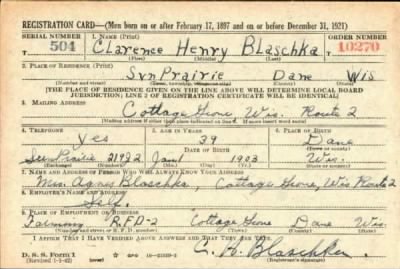 REGISTRATION CARD—(Men born on or after February 17, 1897 and on or before December 31, 1921)
SERIAL NUMBER 1. NAME (Print) ORDER NUMBER
504 Clarence Henry Blaschka 10270
(First) (Middle) (Last)
2. PLACE OF RESIDENCE (Print)
Sun Prairie Dane Wis
(Number and street) (Town, township, village, or city) (County) (State)
[THE PLACE OF RESIDENCE GIVEN ON THE LINE ABOVE WILL DETERMINE LOCAL BOARD
JURISDICTION; LINE 2 OF REGISTRATION CERTIFICATE WILL BE IDENTICAL]
3. MAILING ADDRESS
Cottage Grove Wis. Route 2
(Mailing address if other than place indicated on line 2. If same insert word same)
4. TELEPHONE 5. AGE IN YEARS 6. PLACE OF BIRTH
Yes 39 Dane
DATE OF BIRTH
Sun Prairie Jan 1903 Wis.
7. NAME AND ADDRESS OF PERSON WHO WILL ALWAYS KNOW YOUR ADDRESS
Mrs. Agnes Blaschka Cottage Grove, Wis Route 2
8. EMPLOYER'S NAME AND ADDRESS
Self.
9. PLACE OF EMPLOYMENT OR BUSINESS
Farming R.F.D-2 Cottage Grove Dane Wis.
(Number and street or R. F. D. number) (Town) (County) (State)
I AFFIRM THAT I HAVE VERIFIED ABOVE ANSWERS AND THAT THEY ARE TRUE.
D. S. S. Form 1
(Revised 1-1-42) (over) GPO C. H. Blaschka
(Registrant's signature)